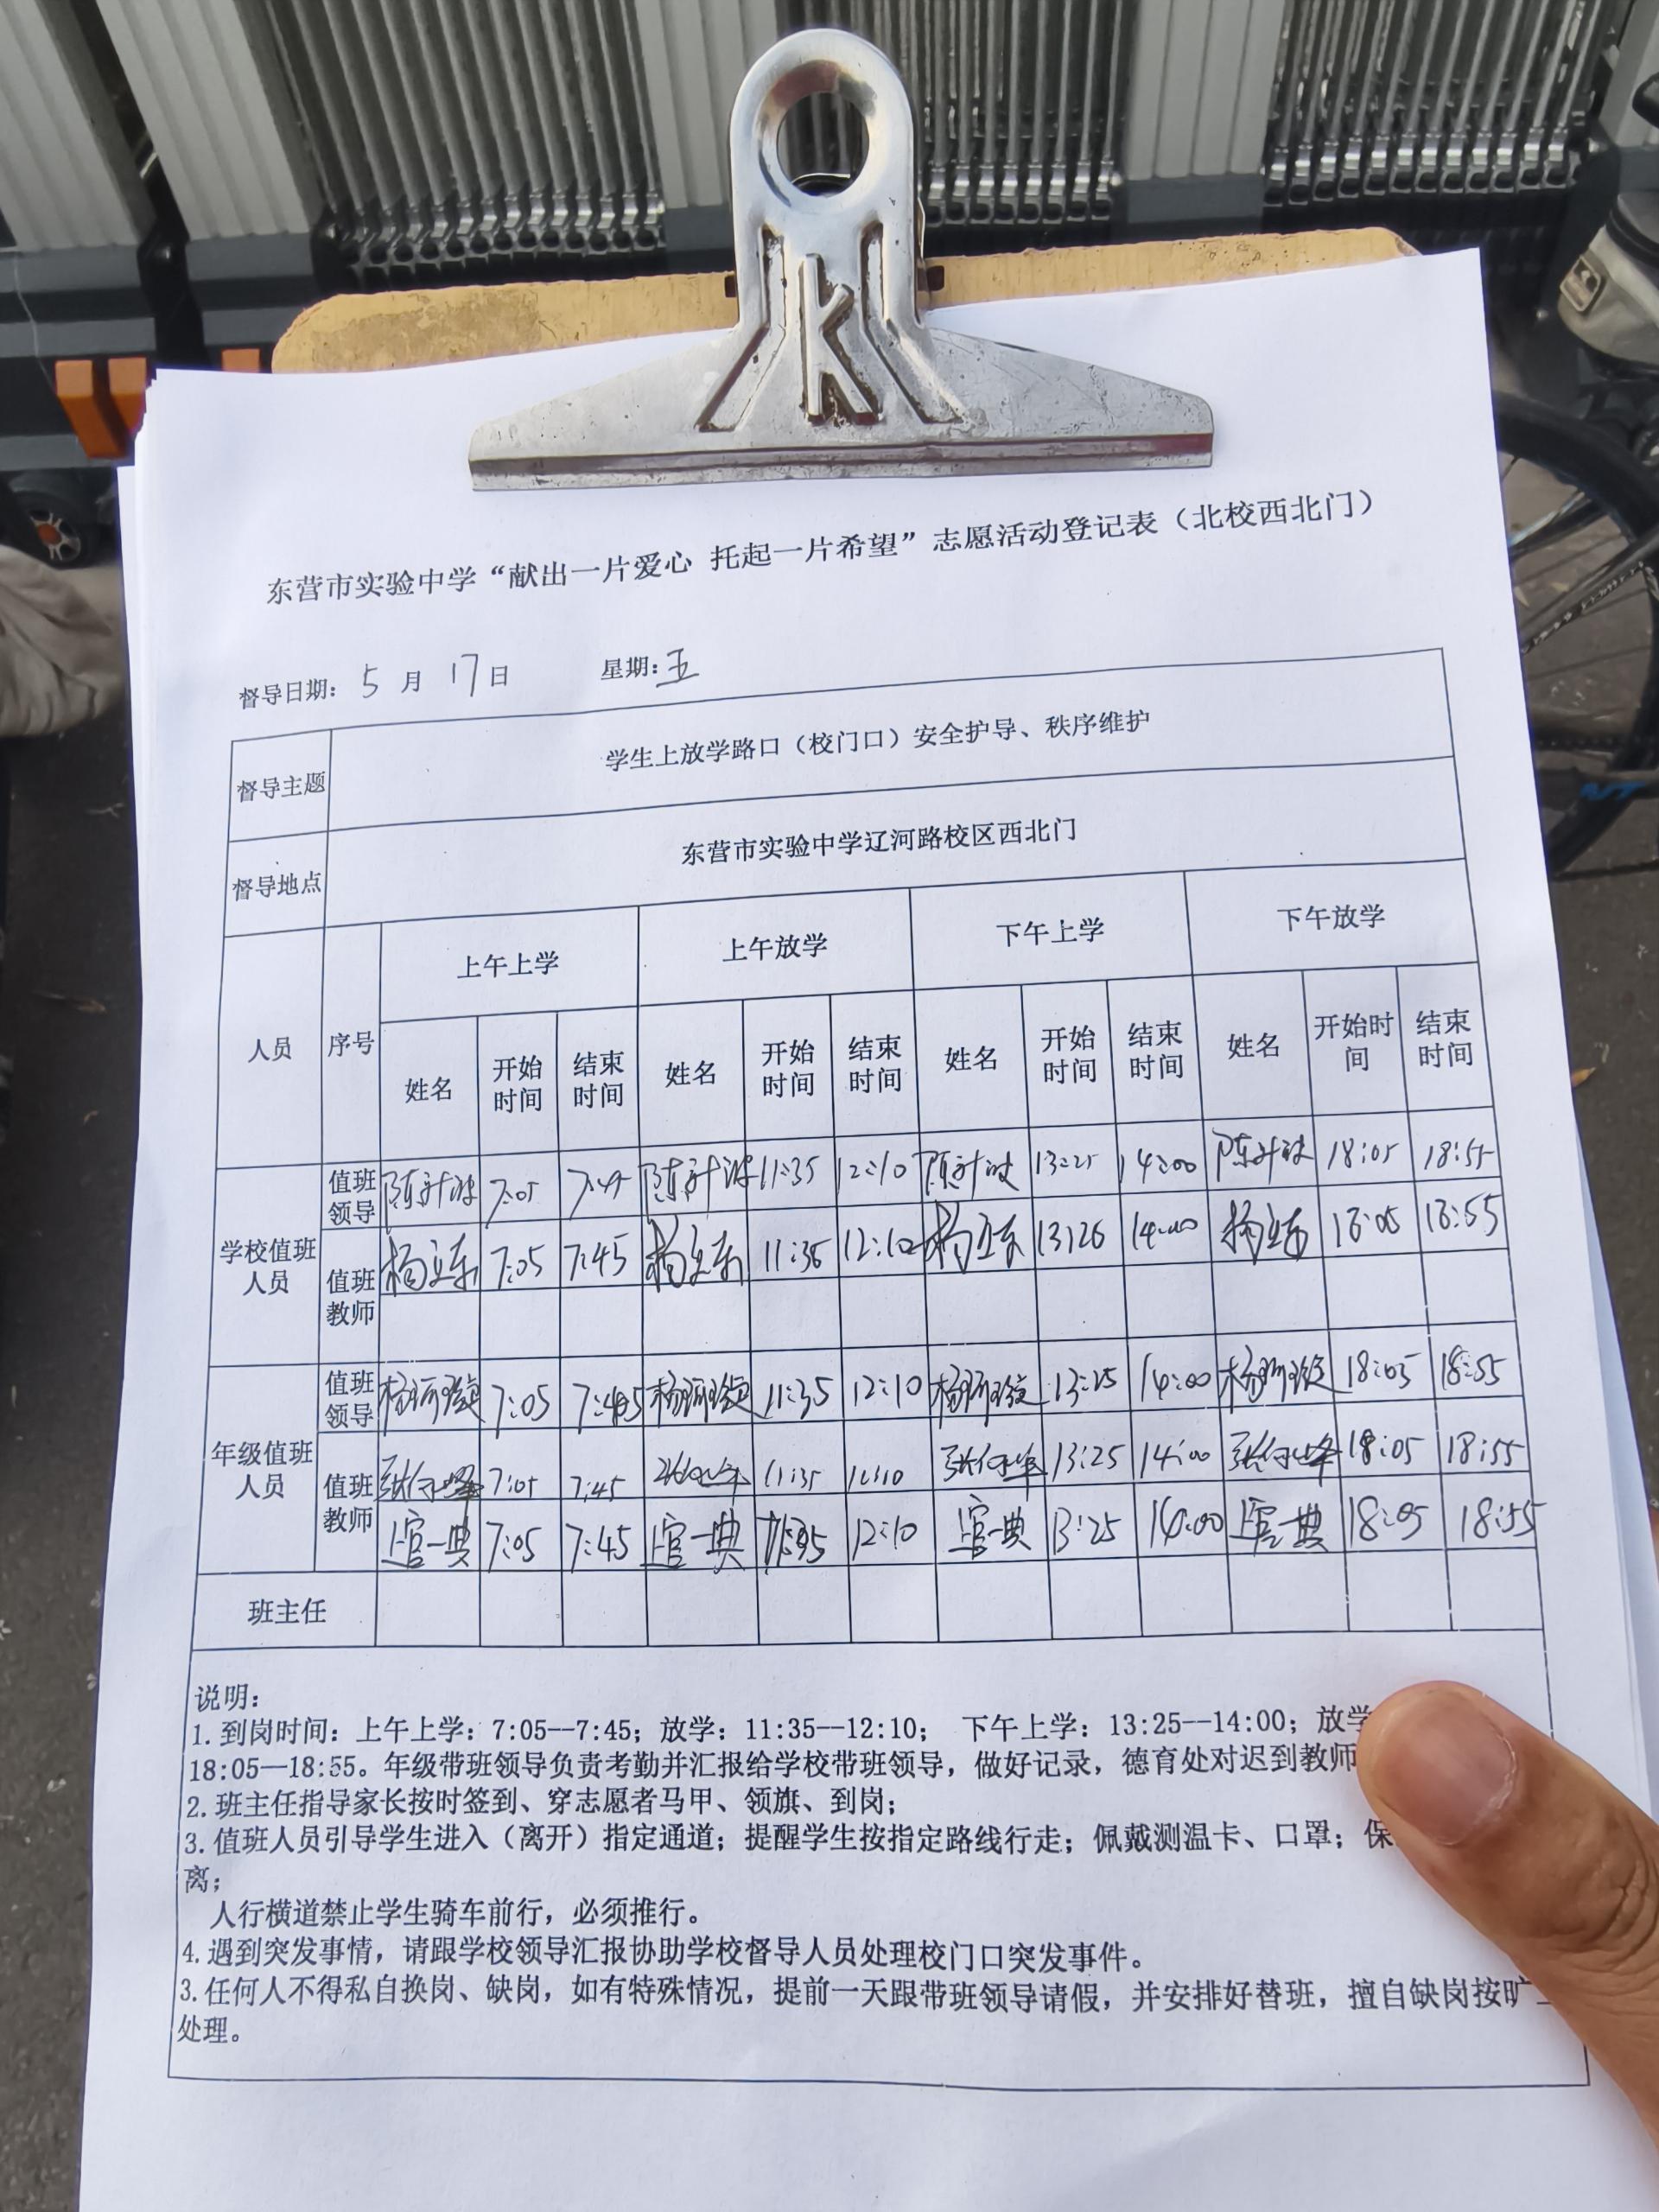 K
东营市实验中学“献出一片爱心 托起一片希望”志愿活动登记表（北校西北门）
督导日期：5月17日 星期：五
督导主题 学生上放学路口（校门口）安全护导、秩序维护
督导地点 东营市实验中学辽河路校区西北门
人员 序号 上午上学 上午放学 下午上学 下午放学
姓名 开始时间 结束时间 姓名 开始时间 结束时间 姓名 开始时间 结束时间 姓名 开始时间 结束时间
学校值班人员 值班领导 7:05 11:35 12:10 13:25 14:00 18:05 18:55
值班教师 杨立东 7:05 7:45 杨立东 11:35 12:10 杨立东 14:00 杨立东 18:05 18:55
年级值班人员 值班领导 7:05 7:45 11:35 12:10 13:25 14:00 18:05 18:55
值班教师 7:05 7:45 11:35 12:10 13:25 14:00 18:05 18:55
7:05 7:45 12:10 13:25 14:00 18:05 18:55
班主任
说明：
1.到岗时间：上午上学：7:05--7:45；放学：11:35--12:10； 下午上学：13:25--14:00；放学
18:05—18:55。年级带班领导负责考勤并汇报给学校带班领导，做好记录，德育处对迟到教师
2.班主任指导家长按时签到、穿志愿者马甲、领旗、到岗；
3.值班人员引导学生进入（离开）指定通道；提醒学生按指定路线行走；佩戴测温卡、口罩；保
离；
人行横道禁止学生骑车前行，必须推行。
4.遇到突发事情，请跟学校领导汇报协助学校督导人员处理校门口突发事件。
3.任何人不得私自换岗、缺岗，如有特殊情况，提前一天跟带班领导请假，并安排好替班，擅自缺岗按旷
处理。